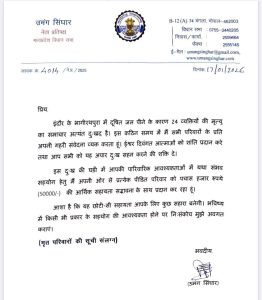 उमंग सिंघार
नेता प्रतिपक्ष
मध्यप्रदेश विधान सभा
बी-12 (ए) 74 बंगला, भोपाल-462003
विधान सभा : 0755-2440205
निवास/कार्या. : 2559664
फैक्स : 2555148
ई-मेल :
क्रमांक 4014 /नेप्र./2025
दिनांक 17/01/2026
प्रिय,
इंदौर के भागीरथपुरा में दूषित जल पीने के कारण 24 व्यक्तियों की मृत्यु
का समाचार अत्यंत दुःखद है। इस कठिन समय में मैं सभी परिवारों के प्रति
अपनी गहरी संवेदना व्यक्त करता हूँ। ईश्वर दिवंगत आत्माओं को शांति प्रदान करे
तथा आप सभी को यह अपार दुःख सहन करने की शक्ति दे।
इस दुःख की घड़ी में आपकी पारिवारिक आवश्यकताओं में यथा संभव
सहयोग हेतु मैं अपनी ओर से प्रत्येक पीड़ित परिवार को पचास हजार रूपये
(50000/-) की आर्थिक सहायता सद्भावना के साथ प्रदान कर रहा हूँ।
आशा है कि यह छोटी-सी सहायता आपके लिए कुछ सहारा बनेगी। भविष्य
में किसी भी प्रकार के सहयोग की आवश्यकता होने पर निःसंकोच मुझे अवगत
कराएं।
(मृत परिवारों की सूची संलग्न)
भवदीय,
(उमंग सिंघार)